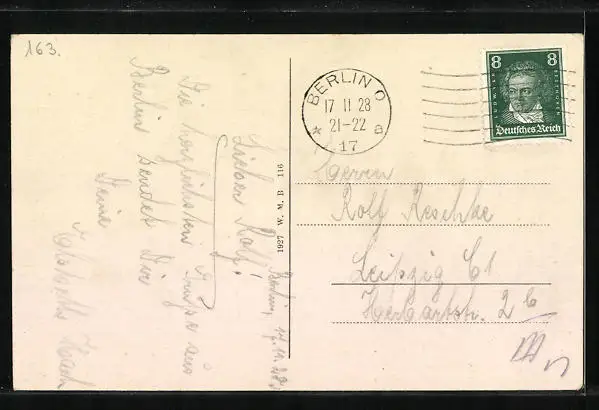 163.
Berlin, 17.11.28.
Lieber Rolf!
Die herzlichsten Grüße aus
Berlin sendet Dir
Deine
Elsbeth
116 B. M. W. W. 1927
BERLIN O
17 11 28
21-22
* a
17
8 8
LUDWIG V. BEETHOVEN
Deutsches Reich
Herrn
Rolf Reschke
Leipzig C1
Herbartstr. 2